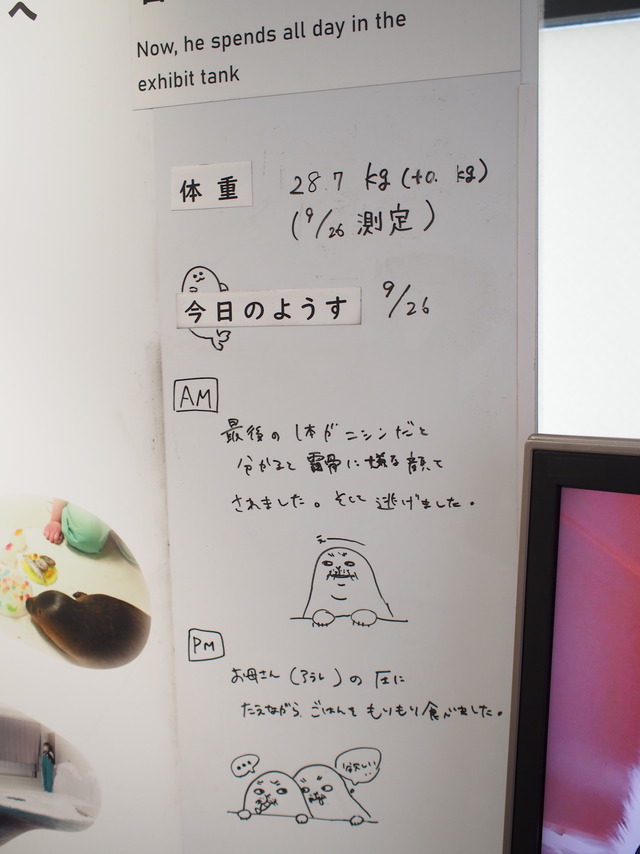 へ
Now, he spends all day in the
exhibit tank
体重 28.7 kg (+0. kg)
(9/26 測定)
今日のようす 9/26
AM
最後の1本がニシンだと
分かると露骨に嫌な顔を
されました。そして逃げました。
PM
お母さん(アラレ)の圧に
たえながら、ごはんをもりもり食べました。
...
欲しい!!